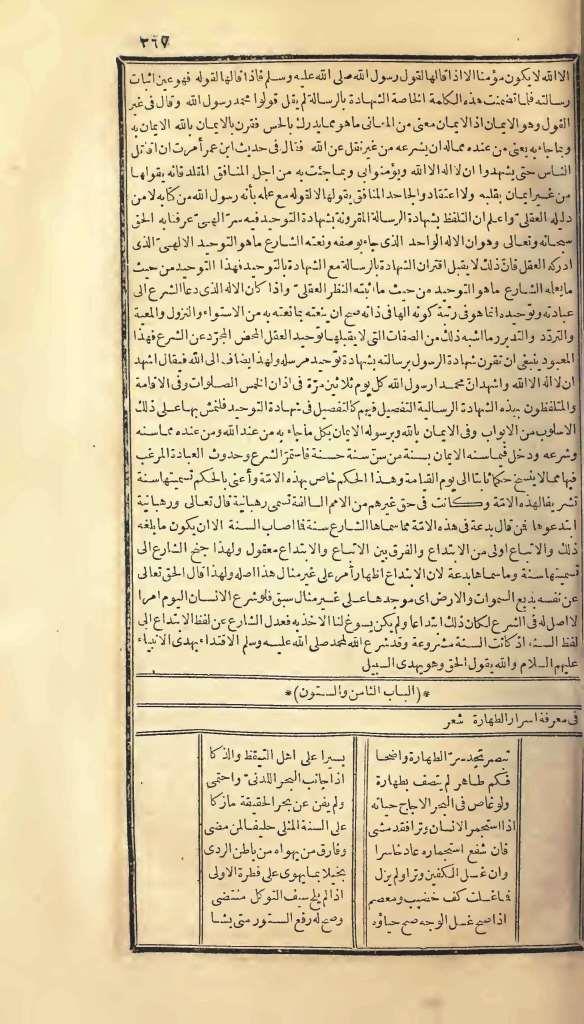 ٣٦٧
الا الله لا يكون مؤمنا الا اذا قالها لقول رسول الله صلى الله عليه وسلم فاذا قالها لقوله فهو عين اثبات
رسالته فلما تضمنت هذه الكلمة الخاصة الشهادة بالرسالة لم يقل قولوا محمد رسول الله وقال فى غير
القول وهو الايمان اذ الايمان معنى من المعانى ما هو مما يدرك بالحس فقرن بالايمان بالله الايمان به
وبما جاء به يعنى من عنده مما له ان يشرعه من غير نقل عن الله فقال فى حديث ابن عمر أمرت ان اقاتل
الناس حتى يشهدوا ان لا اله الا الله ويؤمنوا بى وبما جئت به من اجل المنافق المقلد فانه يقولها
من غير ايمان بقلبه ولا اعتقاد والجاحد المنافق يقولها لا لقوله مع علمه بأنه رسول الله من كتابه لا من
دليله العقلى واعلم ان التلفظ بشهادة الرسالة المقرونة بشهادة التوحيد فيه سر الهى عرفنا به الحق
سبحانه وتعالى وهو ان الاله الواحد الذى جاء بوصفه ونعته الشارع ما هو التوحيد الالهى الذى
ادركه العقل فان ذلك لا يقبل اقتران الشهادة بالرسالة مع الشهادة بالتوحيد فهذا التوحيد من حيث
ما يعلمه الشارع ما هو التوحيد من حيث ما اثبته النظر العقلى واذا كان الاله الذى دعا الشرع الى
عبادته وتوحيده انما هو فى رتبة كونه الها فى ذاته صح ان ينعته بما نعته به من الاستواء والنزول والمعية
والتردد والتدبر وما اشبه ذلك من الصفات التى لا يقبلها توحيد العقل المحض المجرد عن الشرع فهذا
المعبود ينبغى ان تقرن شهادة الرسول برسالته بشهادة توحيد مرسله ولهذا يضاف الى الله فيقال اشهد
ان لا اله الا الله واشهد ان محمدا رسول الله كل يوم ثلاثين مرة فى اذان الخمس الصلوات وفى الاقامة
والمتلفظون بهذه الشهادة الرسالية التفصيل فيهم كالتفصيل فى شهادة التوحيد فلنمش بها على ذلك
الاسلوب من الابواب وفى الايمان بالله وبرسوله الايمان بكل ما جاء به من عند الله ومن عنده مما سنه
وشرعه ودخل فيما سنه الايمان بسنة من سن سنة حسنة فاستمر الشرع وحدوث العبادة المرغب
فيها مما لا ينسخ حكما ثابتا الى يوم القيامة وهذا الحكم خاص بهذه الامة وأعنى بالحكم تسميتها سنة
تشريفا لهذه الامة وكانت فى حق غيرهم من الامم السالفة تسمى رهبانية قال تعالى ورهبانية
ابتدعوها فمن قال بدعة فى هذه الامة مما سماها الشارع سنة فما اصاب السنة الا ان يكون ما بلغه
ذلك والاتباع اولى من الابتداع والفرق بين الاتباع والابتداع معقول ولهذا جنح الشارع الى
تسميتها سنة وما سماها بدعة لان الابتداع اظهار أمر على غير مثال هذا اصله ولهذا قال الحق تعالى
عن نفسه بديع السموات والارض اى موجدها على غير مثال سبق فلو شرع الانسان اليوم امرا
لا اصل له فى الشرع لكان ذلك ابتداعا ولم يكن يسوغ لنا الاخذ به فعدل الشارع عن لفظ الابتداع الى
لفظ السنة اذ كانت السنة مشروعة وقد شرع الله لمحمد صلى الله عليه وسلم الاقتداء بهدى الانبياء
عليهم السلام والله يقول الحق وهو يهدى السبيل
*(الباب الثامن والستون)*
فى معرفة اسرار الطهارة شعر
تبصر تجد سر الطهارة واضحا يسيرا على اهل التيقظ والذكا
فكم طاهر لم يتصف بطهارة اذا جانب البحر اللدنى واحتمى
ولو غاص فى البحر الاجاج حياته ولم يفن عن بحر الحقيقة ما زكا
اذا استجمر الانسان وترا فقد مشى على السنة المثلى حليفا لمن مضى
فان شفع استجماره عاد خاسرا وفارق من يهواه من باطن الردى
وان غسل الكفين وترا ولم يزل بخيلا بما يهوى على فطرة الاولى
فما غسلت كف خضيب ومعصم اذا لم يلح سيف التوكل منتضى
اذا صح غسل الوجه صح حياؤه وصح له رفع الستور متى يشا